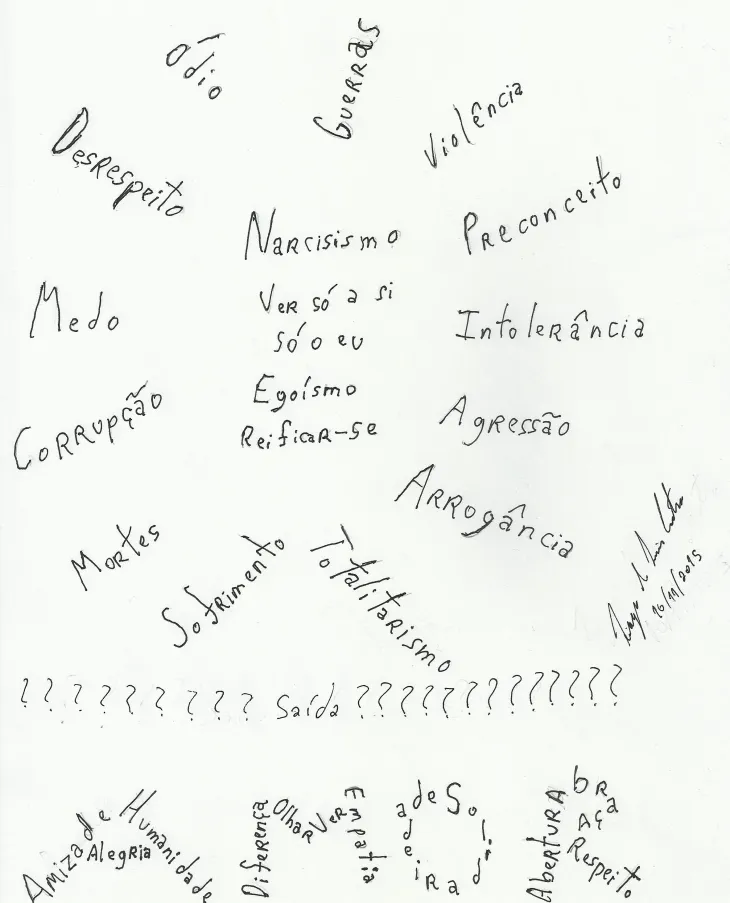 Ódio
Guerras
Violência
Desrespeito
Preconceito
Narcisismo
Ver só a si
só o eu
Egoísmo
Reificar-se
Medo
Intolerância
Corrupção
Agressão
Arrogância
Mortes
Sofrimento
Totalitarismo
16/11/2015
? ? ? ? ? ? ? ? ? Saída ? ? ? ? ? ? ? ? ? ? ? ? ?
Amizade Humanidade
Alegria
Diferença Olhar Ver Empatia
Solidariedade
Abertura
braça
Respeito